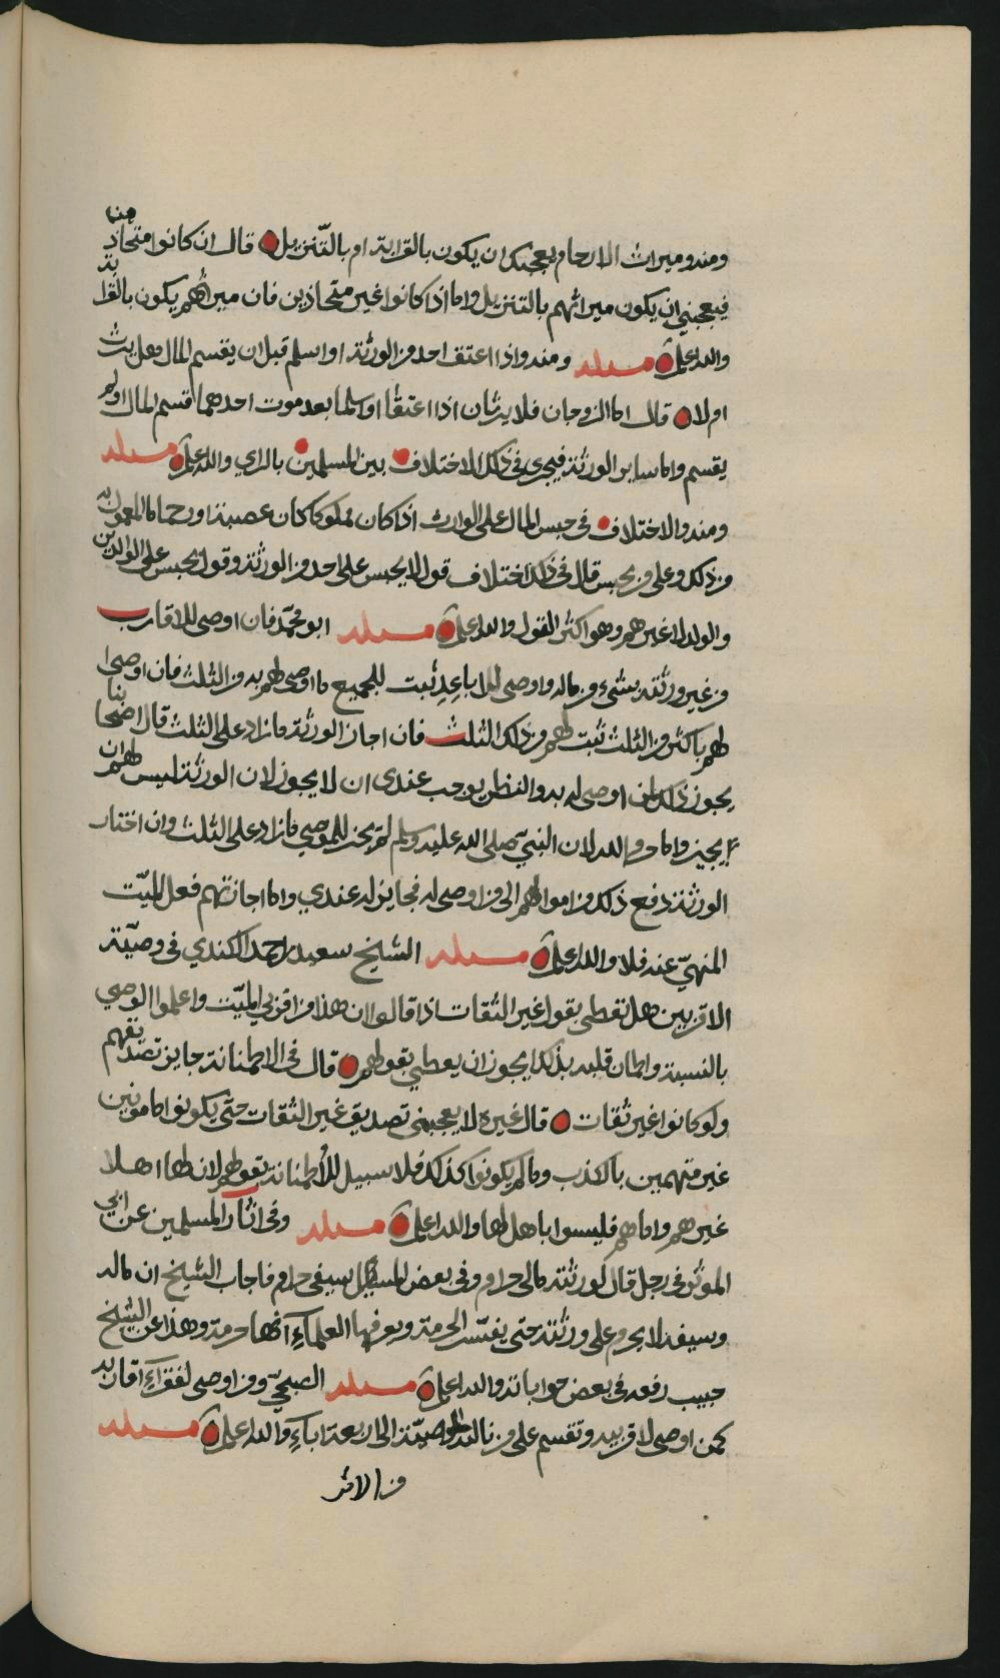 ومنه وميراث الارحام يعجبك ان يكون بالقرابة ام بالتنزيل قال ان كانوا متحاذين
فيعجبني ان يكون ميراثهم بالتنزيل واما اذا كانوا غير متحاذين فان ميراثهم يكون بالقرابة
والله اعلم مسئلة ومنه واذا اعتق احد من الورثة او اسلم قبل ان يقسم المال هل يرث
ام لا قال اما الزوجان فلا يرثان اذا اعتقا او اسلما بعد موت احدهما قسم المال او لم
يقسم واما ساير الورثة فيجري في ذلك الاختلاف بين المسلمين بالراي والله اعلم مسئلة
ومنه والاختلاف في حبس المال على الوارث اذا كان مملوكا كان عصبة او رحما ما المعمول به
من ذلك وعلى من يحبس قال في ذلك اختلاف قول لا يحبس على احد من الورثة وقول يحبس على الوالدين
والولد لا غيرهم وهو اكثر القول والله اعلم مسئلة ابو محمد فان اوصى للاقارب
من غير ورثته بشيء من ماله واوصى للاباعد ثبت للجميع ما اوصى لهم به من الثلث فان اوصى
لهم باكثر من الثلث ثبت لهم من ذلك الثلث فان اجاز الورثة ما زاد على الثلث قال اصحابنا
يجوز ذلك لمن اوصى له به والنظر يوجب عندي ان لا يجوز لان الورثة ليس لهم ان
يجيزوا ما حرم الله لان النبي صلى الله عليه وسلم لم يجز للموصي ما زاد على الثلث وان اختار
الورثة دفع ذلك من اموالهم الى من اوصى له فجايز له عندي واما اجازتهم فعل الميت
المنهي عنه فلا والله اعلم مسئلة الشيخ سعيد بن احمد الكندي في وصية
الاقربين هل تعطى بقول غير الثقات اذا قالوا ان هذا من اقربي الميت واعلموا الوصي
بالنسبة واطمان قلبه بذلك ايجوز ان يعطي بقولهم قال في الاطمنانة جايز تصديقهم
ولو كانوا غير ثقات قال غيره لا يعجبني تصديق غير الثقات حتى يكونوا مامونين
غير متهمين بالكذب وما لم يكونوا كذلك فلا سبيل للأطمنانة بقولهم لان لها اهلا
غيرهم واما هم فليسوا باهل لها والله اعلم مسئلة وفي اثار المسلمين عن ابي
المؤثر في رجل قال لورثته مالي حرام وفي بعض المسايل سيفي حرام فاجاب الشيخ ان ماله
وسيفه لا يحرم على ورثته حتى يفسر الحرمة ويعرفها العلماء انها حرمة وهذا عن الشيخ
حبيب رفعه في بعض جواباته والله اعلم مسئلة الصبحي ومن اوصى لفقراء اقاربه
كمن اوصى لاقربيه وتقسم على من نالته الوصية الى اربعة اباء والله اعلم مسئلة
من الاثر